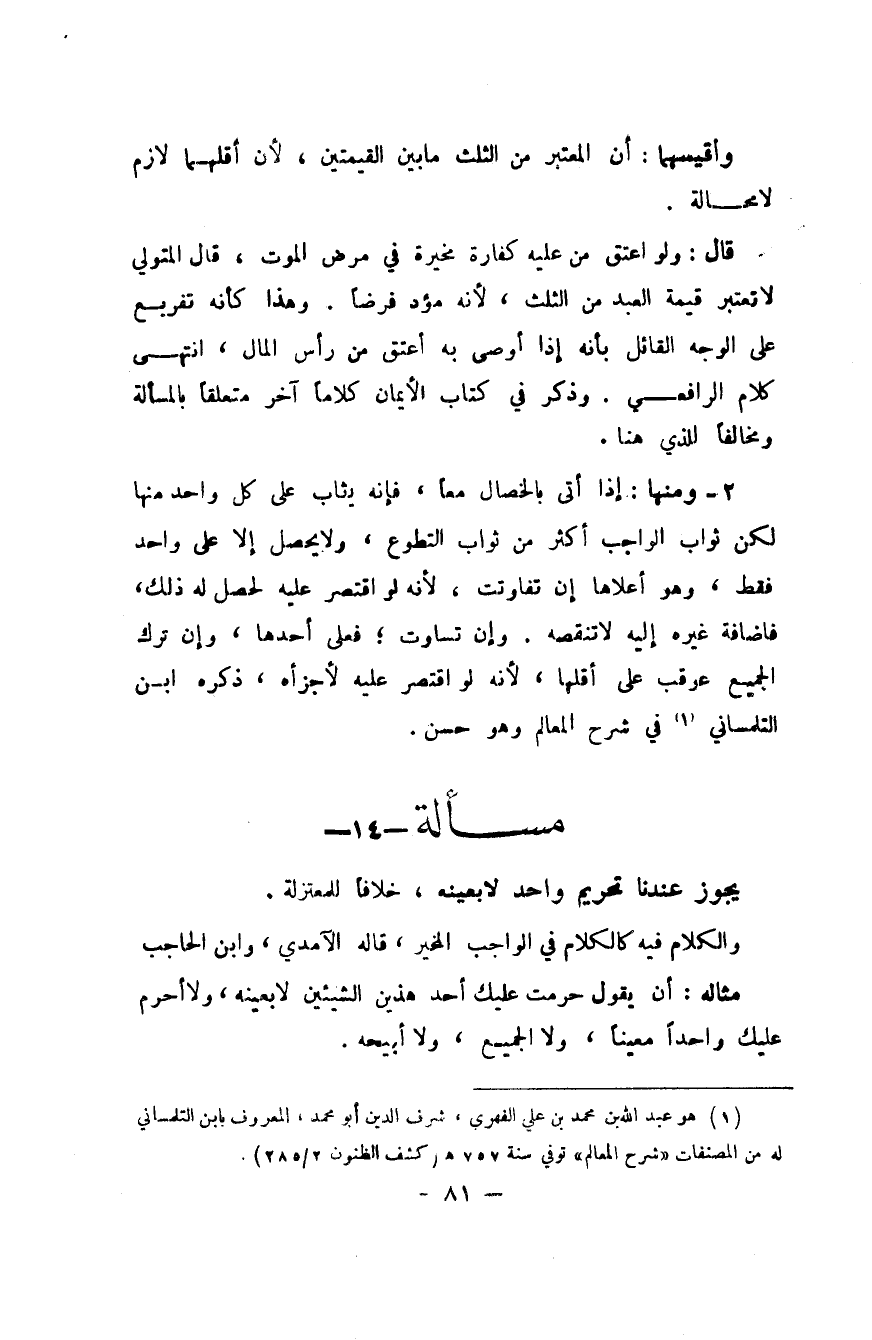 وأقيسهما : أن المعتبر من الثلث مابين القيمتين ، لأن أقلهما لازم
لامحالة .
قال : ولو اعتق من عليه كفارة مخيرة في مرض الموت ، قال المتولي
لاتعتبر قيمة العبد من الثلث ، لأنه مؤد فرضاً . وهذا كأنه تفريع
على الوجه القائل بأنه إذا أوصى به أعتق من رأس المال ، انتهى
كلام الرافعي . وذكر في كتاب الأيمان كلاماً آخر متعلقاً بالمسألة
ومخالفاً للذي هنا .
٢ - ومنها : إذا أتى بالخصال معاً ، فإنه يثاب على كل واحد منها
لكن ثواب الواجب أكثر من ثواب التطوع ، ولايحصل إلا على واحد
فقط ، وهو أعلاها إن تفاوتت ، لأنه لو اقتصر عليه لحصل له ذلك،
فاضافة غيره إليه لاتنقصه . وإن تساوت ؛ فعلى أحدها ، وإن ترك
الجميع عوقب على أقلها ، لأنه لو اقتصر عليه لأجزأه ، ذكره ابن
التلمساني (١) في شرح المعالم وهو حسن .
مسألة -١٤-
يجوز عندنا تحريم واحد لابعينه ، خلافاً للمعتزلة .
والكلام فيه كالكلام في الواجب المخير ، قاله الآمدي ، وابن الحاجب
مثاله : أن يقول حرمت عليك أحد هذين الشيئين لابعينه ، ولاأحرم
عليك واحداً معيناً ، ولا الجميع ، ولا أبيحه .
(١) هو عبد اللهبن محمد بن علي الفهري ، شرف الدين أبو محمد ، المعروف بابن التلمساني
له من المصنفات «شرح المعالم» توفي سنة ٧٥٧ ه (كشف الظنون ٢/٢٨٥) .
- ٨١ -